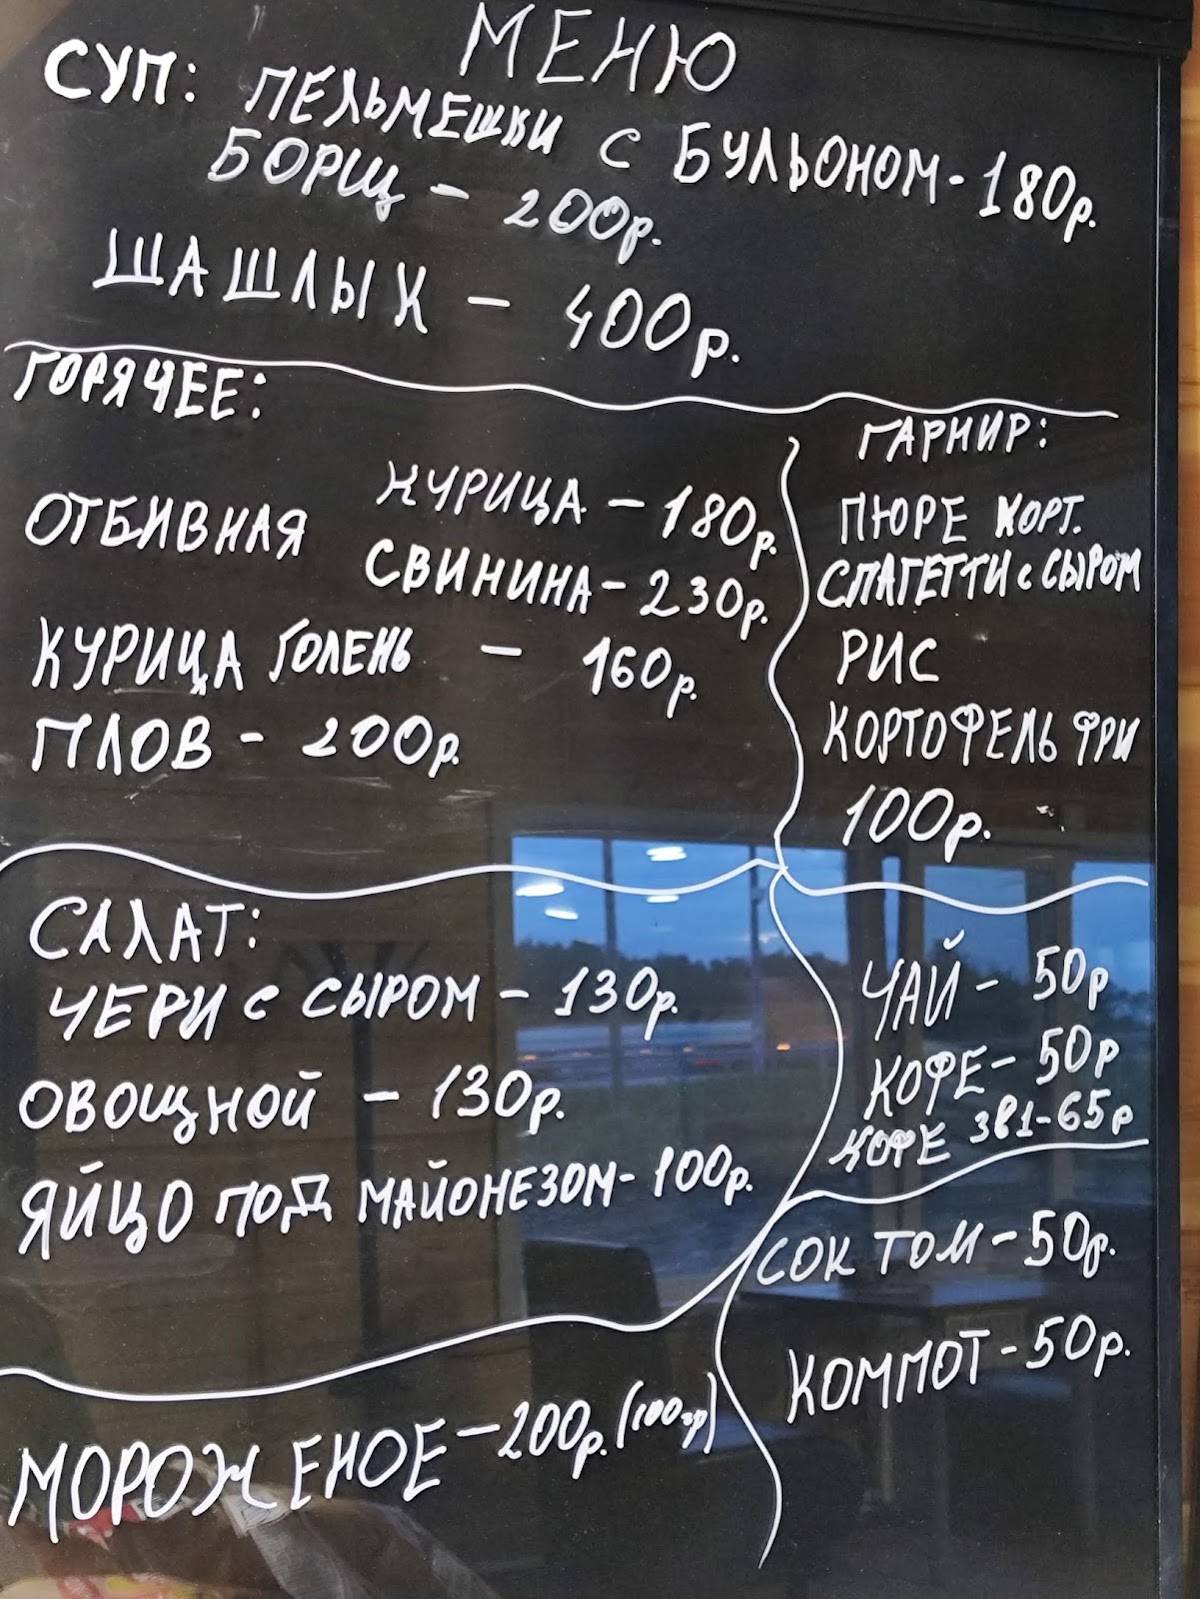 МЕНЮ
СУП: ПЕЛЬМЕШКИ С БУЛЬОНОМ - 180р.
БОРЩ - 200р.
ШАШЛЫК - 400р.
ГОРЯЧЕЕ:
ОТБИВНАЯ КУРИЦА - 180р.
СВИНИНА - 230р.
КУРИЦА ГОЛЕНЬ - 160р.
ПЛОВ - 200р.
ГАРНИР:
ПЮРЕ КОРТ.
СПАГЕТТИ с СЫРОМ
РИС
КОРТОФЕЛЬ ФРИ
100р.
САЛАТ:
ЧЕРИ с СЫРОМ - 130р.
ОВОЩНОЙ - 130р.
ЯЙЦО ПОД МАЙОНЕЗОМ - 100р.
ЧАЙ - 50р
КОФЕ - 50р
КОФЕ 3В1 - 65р
СОК ТОМ - 50р.
КОМПОТ - 50р.
МОРОЖЕНОЕ - 200р. (100гр)